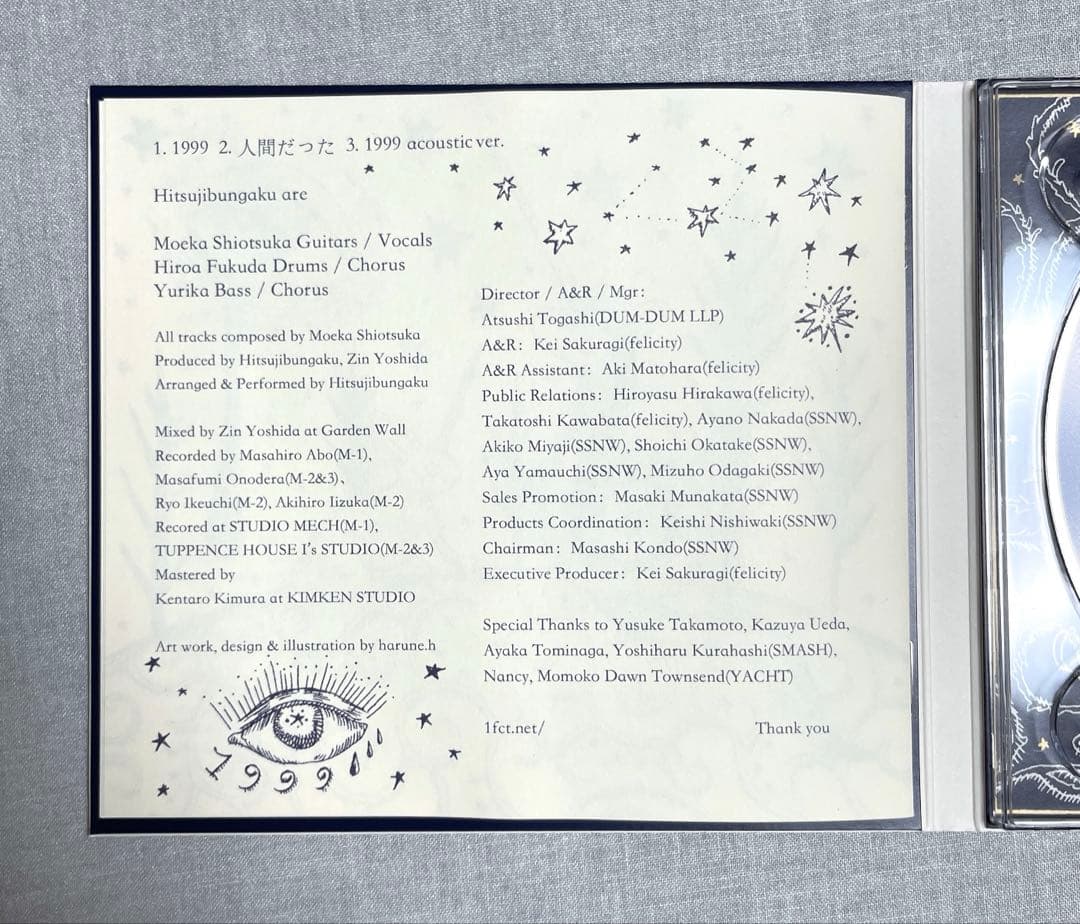 1. 1999 2. 人間だった 3. 1999 acoustic ver.
Hitsujibungaku are
Moeka Shiotsuka Guitars / Vocals
Hiroa Fukuda Drums / Chorus
Yurika Bass / Chorus
All tracks composed by Moeka Shiotsuka
Produced by Hitsujibungaku, Zin Yoshida
Arranged & Performed by Hitsujibungaku
Mixed by Zin Yoshida at Garden Wall
Recorded by Masahiro Abo(M-1),
Masafumi Onodera(M-2&3)、
Ryo Ikeuchi(M-2), Akihiro Iizuka(M-2)
Recored at STUDIO MECH(M-1),
TUPPENCE HOUSE I's STUDIO(M-2&3)
Mastered by
Kentaro Kimura at KIMKEN STUDIO
Art work, design & illustration by harune.h
1999
Director / A&R / Mgr:
Atsushi Togashi(DUM-DUM LLP)
A&R: Kei Sakuragi(felicity)
A&R Assistant: Aki Matohara(felicity)
Public Relations: Hiroyasu Hirakawa(felicity),
Takatoshi Kawabata(felicity), Ayano Nakada(SSNW),
Akiko Miyaji(SSNW), Shoichi Okatake(SSNW),
Aya Yamauchi(SSNW), Mizuho Odagaki(SSNW)
Sales Promotion: Masaki Munakata(SSNW)
Products Coordination: Keishi Nishiwaki(SSNW)
Chairman: Masashi Kondo(SSNW)
Executive Producer: Kei Sakuragi(felicity)
Special Thanks to Yusuke Takamoto, Kazuya Ueda,
Ayaka Tominaga, Yoshiharu Kurahashi(SMASH),
Nancy, Momoko Dawn Townsend(YACHT)
1fct.net/ Thank you